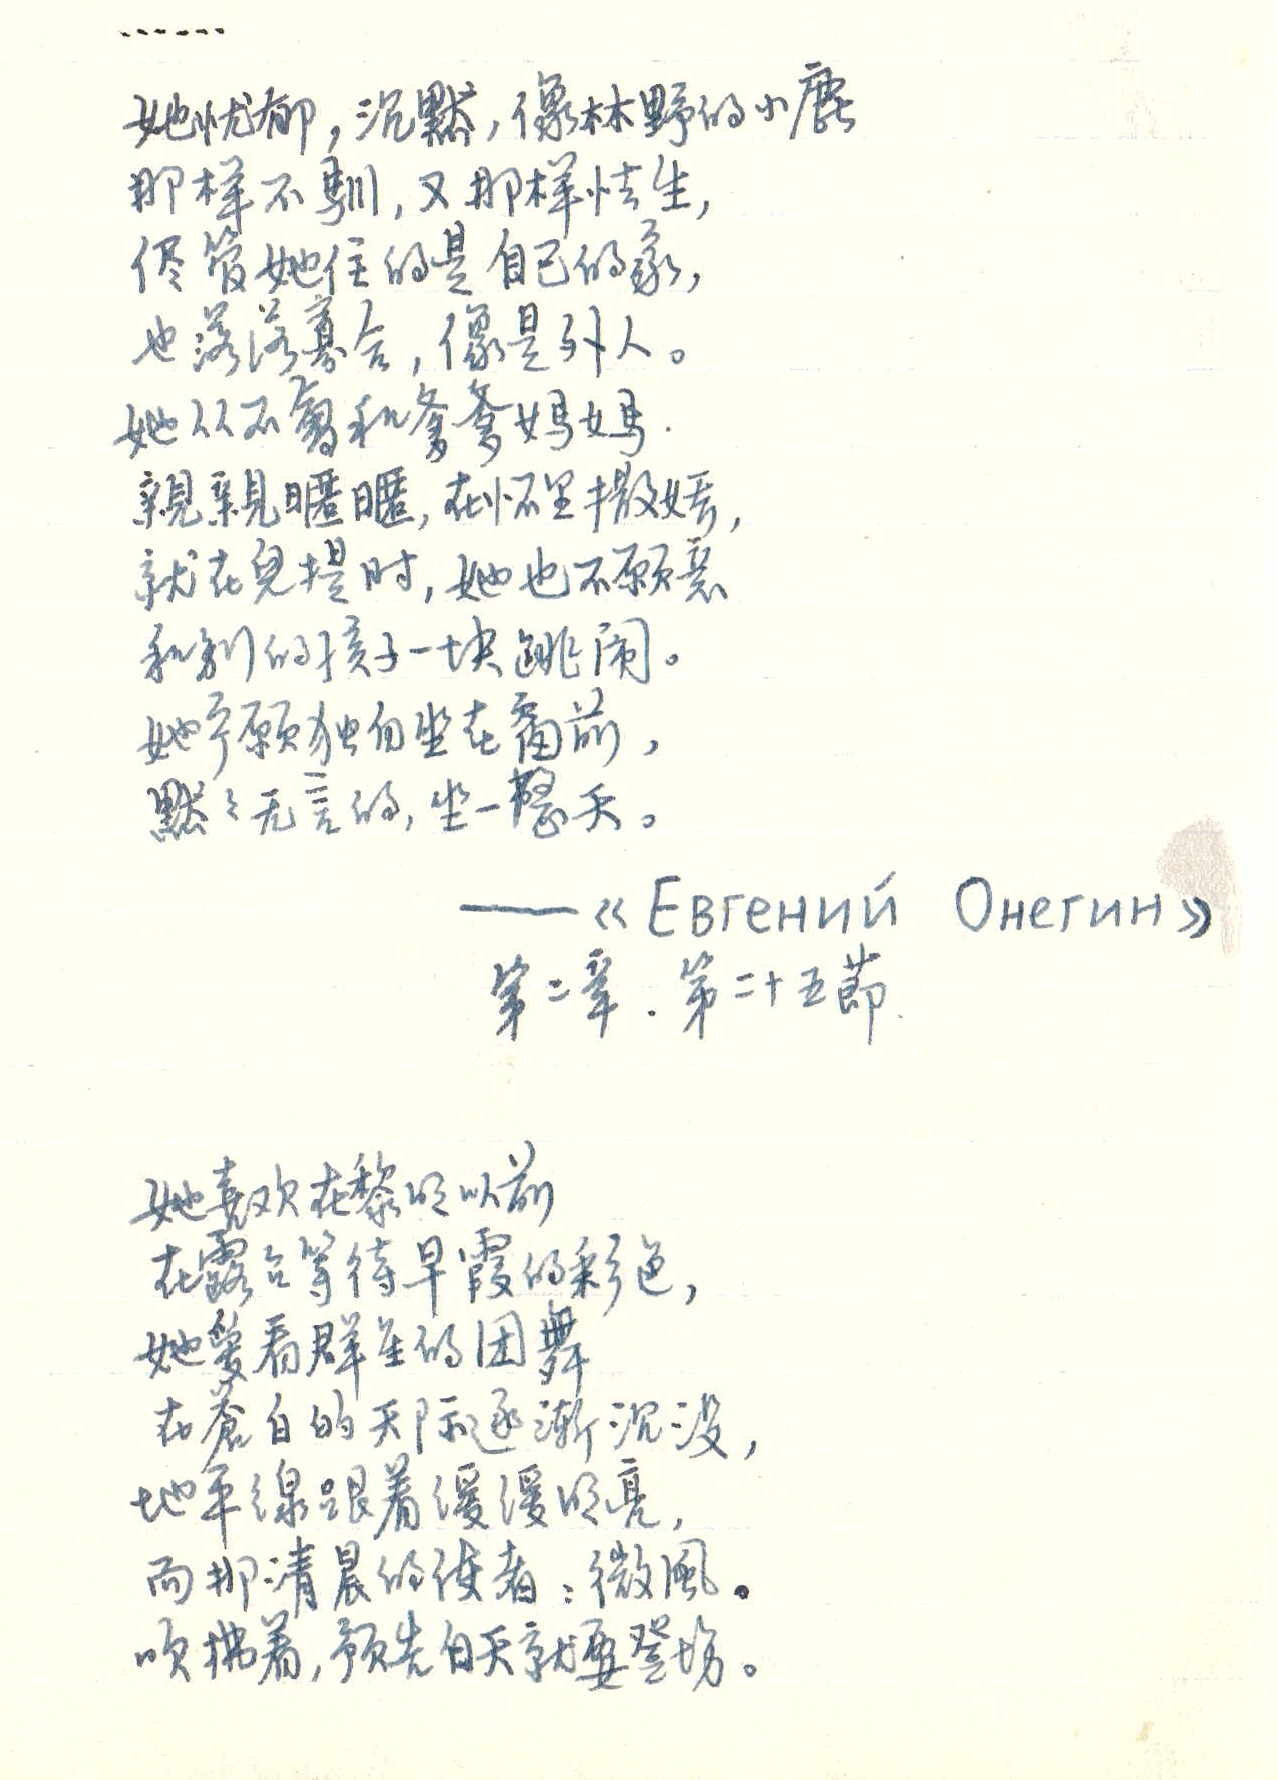 ……
她忧郁,沉默,像林野的小鹿
那样不馴,又那样怯生,
侭管她住的是自己的家,
也落落寡合,像是外人。
她从不会和爹爹媽媽.
親親暱暱,在怀里撒娇,
就在兒提时,她也不願意
和别的孩子一块跳闹。
她宁願独自坐在窗前,
默々无言的,坐一整天。
——《Евгений Онегин》
第二章.第二十五節.
她喜欢在黎明以前
在露台等待早霞的彩色,
她愛看群星的团舞
在蒼白的天际逐渐沉没,
地平線跟着缓缓明亮,
而那清晨的使者:微風。
吹拂着,预告白天就要登场。